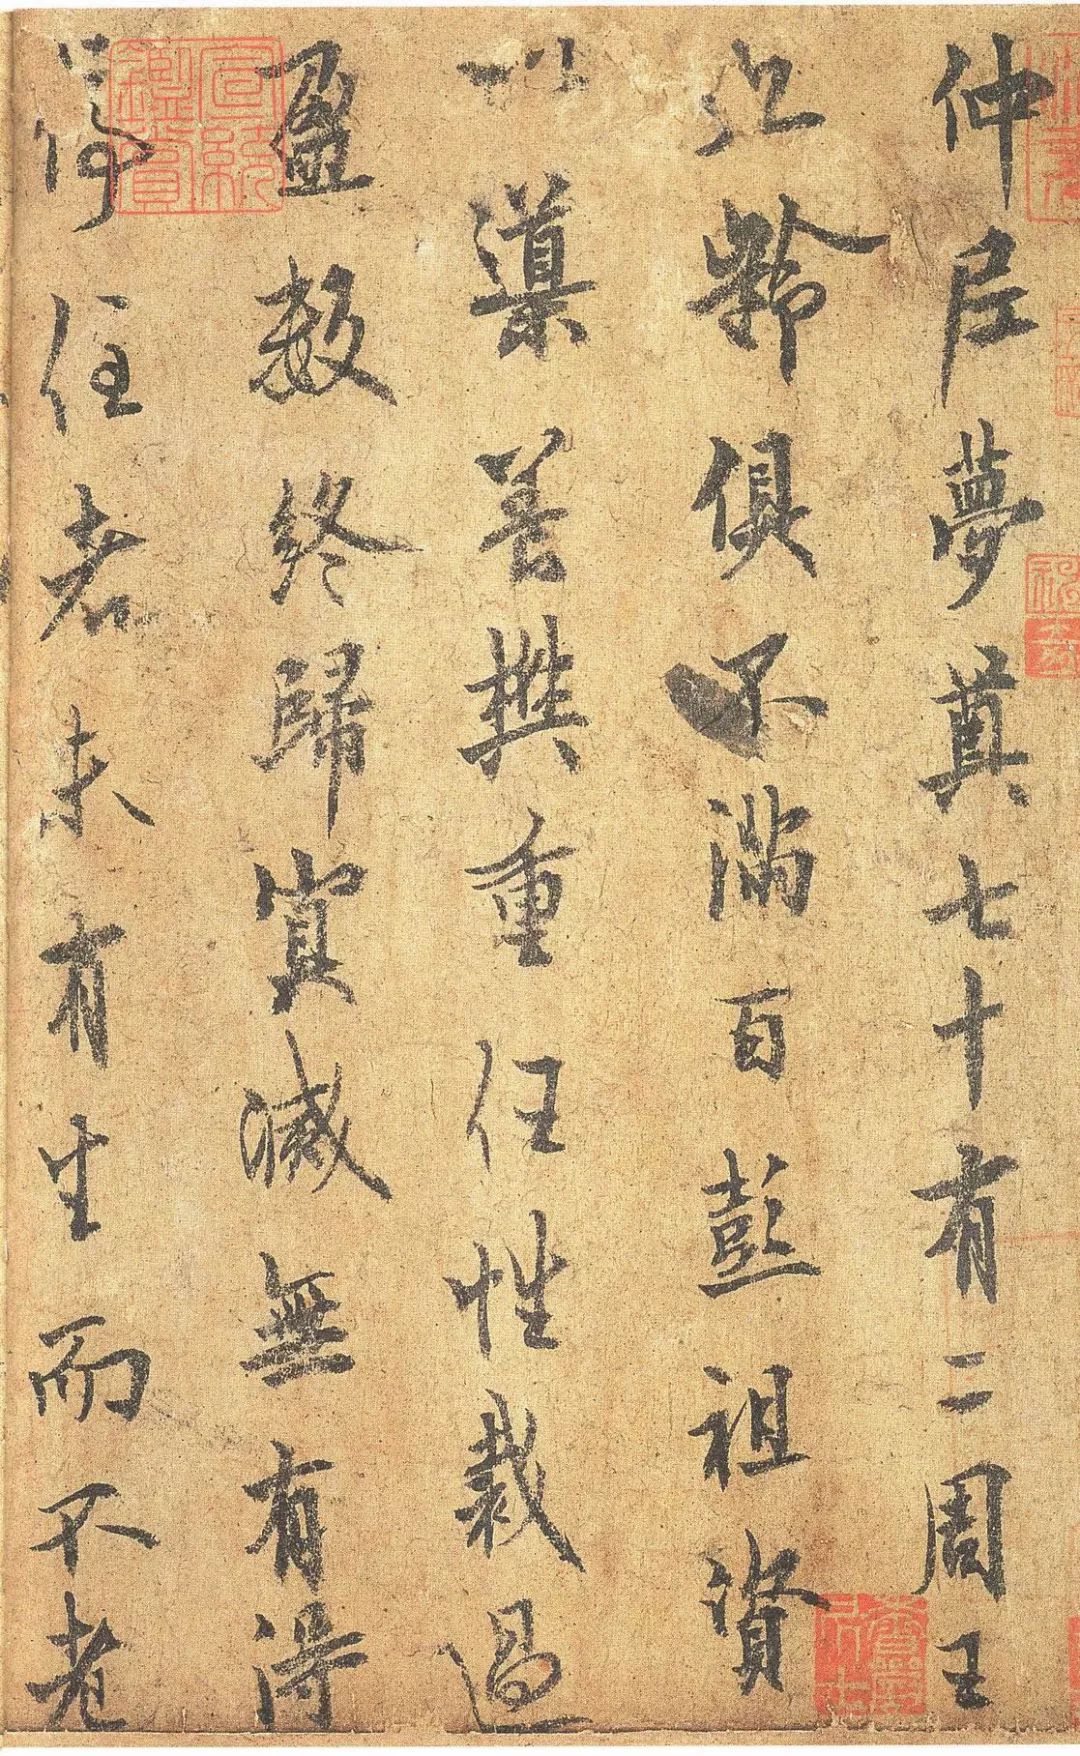 仲尼夢奠七十有二周王
九齡俱不滿百彭祖資
以導養樊重任性裁過
盈數終歸冥滅無有得
停住者未有生而不老
宣統鑑賞